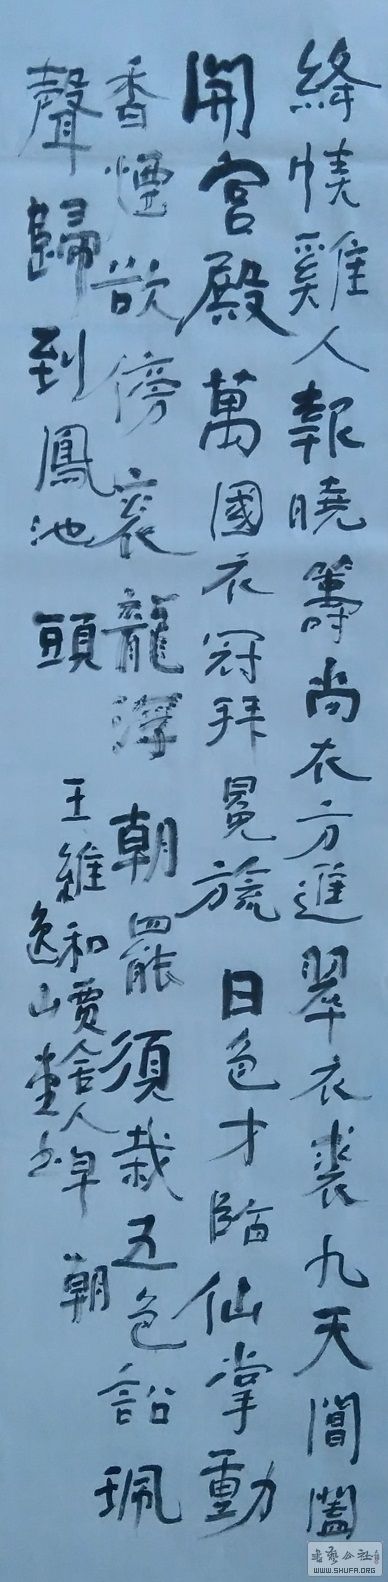 絳幘雞人報曉籌尚衣方進翠衣裘九天閶闔
開宮殿萬國衣冠拜冕旒日色才臨仙掌動
香煙欲傍袞龍浮朝罷須裁五色詔珮
聲歸到鳳池頭
王維和賈舍人早朝
逸山堂書
書藝公社
WWW.SHUFA.ORG